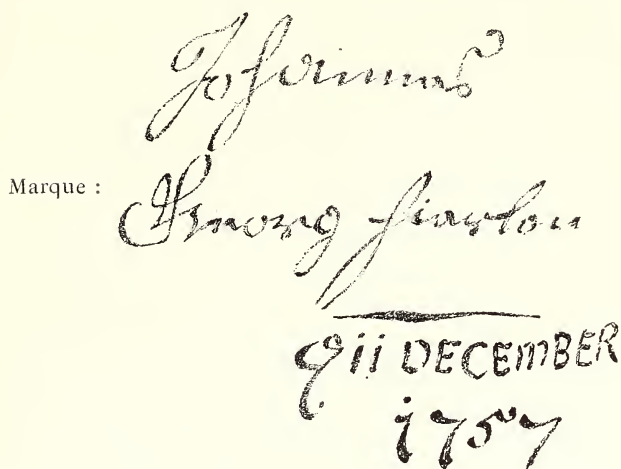 Johannes
Marque :
Georg
ii DECEMBER
1757